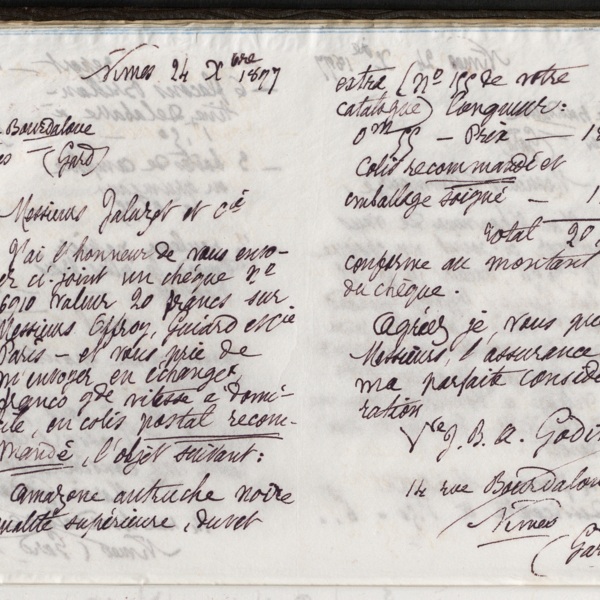 Nîmes 24 Xbre 1897
Bourdaloue
(Gard)
Messieurs Jaluzot et Cie
J'ai l'honneur de vous envo-
er ci-joint un chèque no
6910 valeur 20 francs sur
Messieurs Offroy, Guiard et Cie
Paris - et vous prie de
m'envoyer en échange,
franco gde vitesse à domi-
cile, en colis postal recom-
mandé, l'objet suivant:
amazone autruche noire
ualité supérieure, duvet
extra (no 155 de votre
catalogue) longueur:
0m55 - Prix -
Colis recommandé et
emballage soigné -
Total 20
conforme au montant
du chèque.
Agréez je vous
Messieurs, l'assurance
ma parfaite considé
ration
J. B. A. Godi
14 rue Bourdalou
Nîmes
(Gar